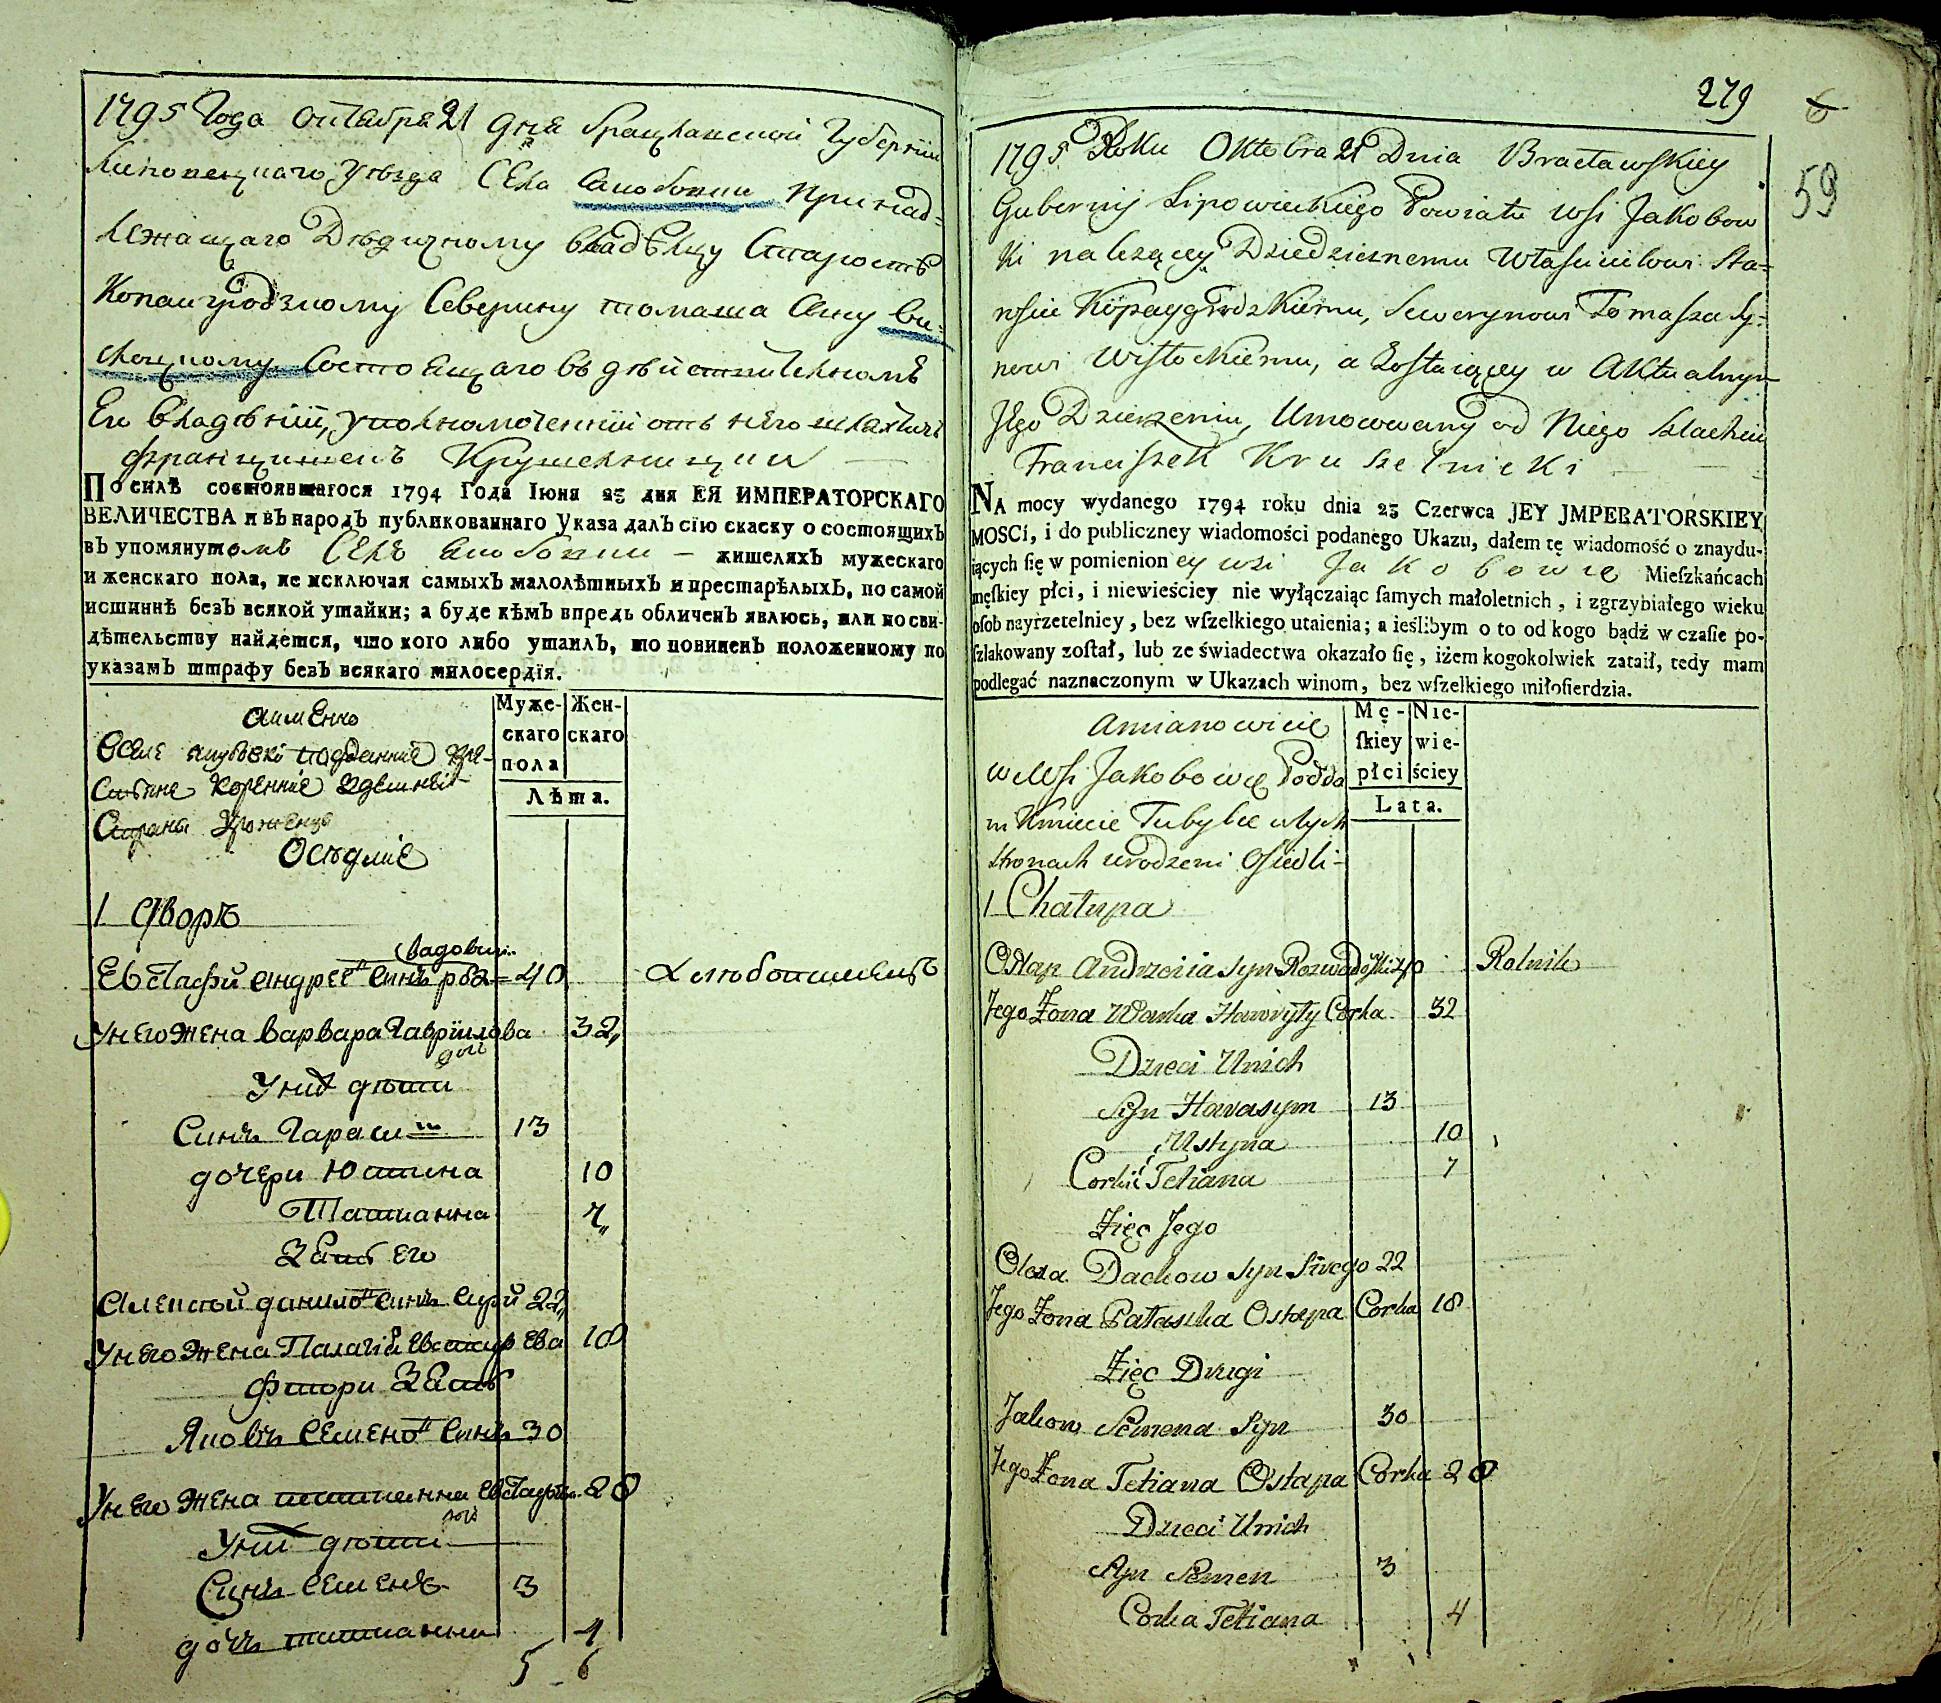 1795 Года октабра 21 дня Брацлавской Губернии
Липовецкаго уезда Села Якобовки принад-
лежащаго Дѣдичному владѣлцу Старостѣ
Копайгродзкому Северину томаша сину Ви-
слоцкому Состоящаго въ дѣйствителномъ
Ево владѣнїи, уполномоченнїй отъ него шляхтичъ
францишекъ Крушелницки
По силѣ состоявшагося 1794 Года Іюня 23 дня ЕЯ ИМПЕРАТОРСКАГО
ВЕЛИЧЕСТВА и въ народъ публикованнаго Указа далъ сїю скаску о состоящихъ
въ упомянутомъ Селѣ Якобовки — жителяхъ мужескаго
и женскаго пола, не исключая самыхъ малолѣтныхъ и престарѣлыхъ, по самой
истиннѣ безъ всякой утайки; а буде кѣмъ впредь обличенъ явлюсь, или по сви-
дѣтельству найдется, что кого либо утаилъ, то повиненъ положенному по
указамъ штрафу безъ всякаго милосердїя.
Муже-
скаго
пола
Жен-
скаго
Лѣта.
а именно
подданнїе
кореннїе здешнїй
Страны
Оседлие
1 дворъ
Евстафий андрее син розвадовски 40
У него жена варвара гаврїилова доч 32
У них дѣти
Синъ Гарасим 13
дочери Юстина 10
Татианна 7
Зять его
Алексѣй данило синъ Сирий 22
У него жена Палагія Евстафиева 18
фтори Зять
Яковъ Семено синъ 30
У него жена татианна Евстафиева доч 28
У них дѣти
Синъ Семенъ 3
дочь татианна 4
5 6
279
59
1795 Roku Oktobra 21 Dnia Bracławskiey
Gubernij Lipowieckiego Powiatu wsi Jakobow
ki należącey Dziedzicznemu Włascicilowi Sta-
roscie Kopaygrodzkiemu, Sewerynowi Tomasza Sy-
nowi Wisłockiemu, a Zostaiącey w Aktualnym
Jego Dzierzeniu, Umocowany od Niego Szlachcic
Franciszek Kruszelnicki
NA mocy wydanego 1794 roku dnia 23 Czerwca JEY JMPERATORSKIEY
MOSCi, i do publiczney wiadomości podanego Ukazu, dałem tę wiadomość o znaydu-
iących ſię w pomienioney wsi Jakobowie Mieſzkańcach
męſkiey płci, i niewieściey nie wyłączaiąc ſamych małoletnich, i zgrzybiałego wieku
oſob nayrzetelniey, bez wſzelkiego utaienia; a ieślibym o to od kogo bądź w czaſie po-
ſzlakowany zoſtał, lub ze świadectwa okazało ſię, iżem kogokolwiek zataił, tedy mam
podlegać naznaczonym w Ukazach winom, bez wſzelkiego miłoſierdzia.
Mę-
ſkiey
płci
Nie-
wie-
ściey
Lata.
a mianowicie
we Wsi Jakobowie Podda
ni Kmiecie Tubylce w tych
stronach urodzeni Osiedli
1 Chałupa
Ostap Andrzeia syn Rozwadowski 40 Rolnik
Jego Żona Warka Hawryły Corka 32
Dzieci Unich
Syn Harasym 13
Ustyna 10
Corki Tetiana 7
Zięć Jego
Olexa Dackow syn Sirego 22
Jego Żona Pałaszka Ostapa Corka 18
Zięć Drugi
Jakow Semena Syn 30
Jego Żona Tetiana Ostapa Corka 28
Dzieci Unich
Syn Semen 3
Corka Tetiana 4